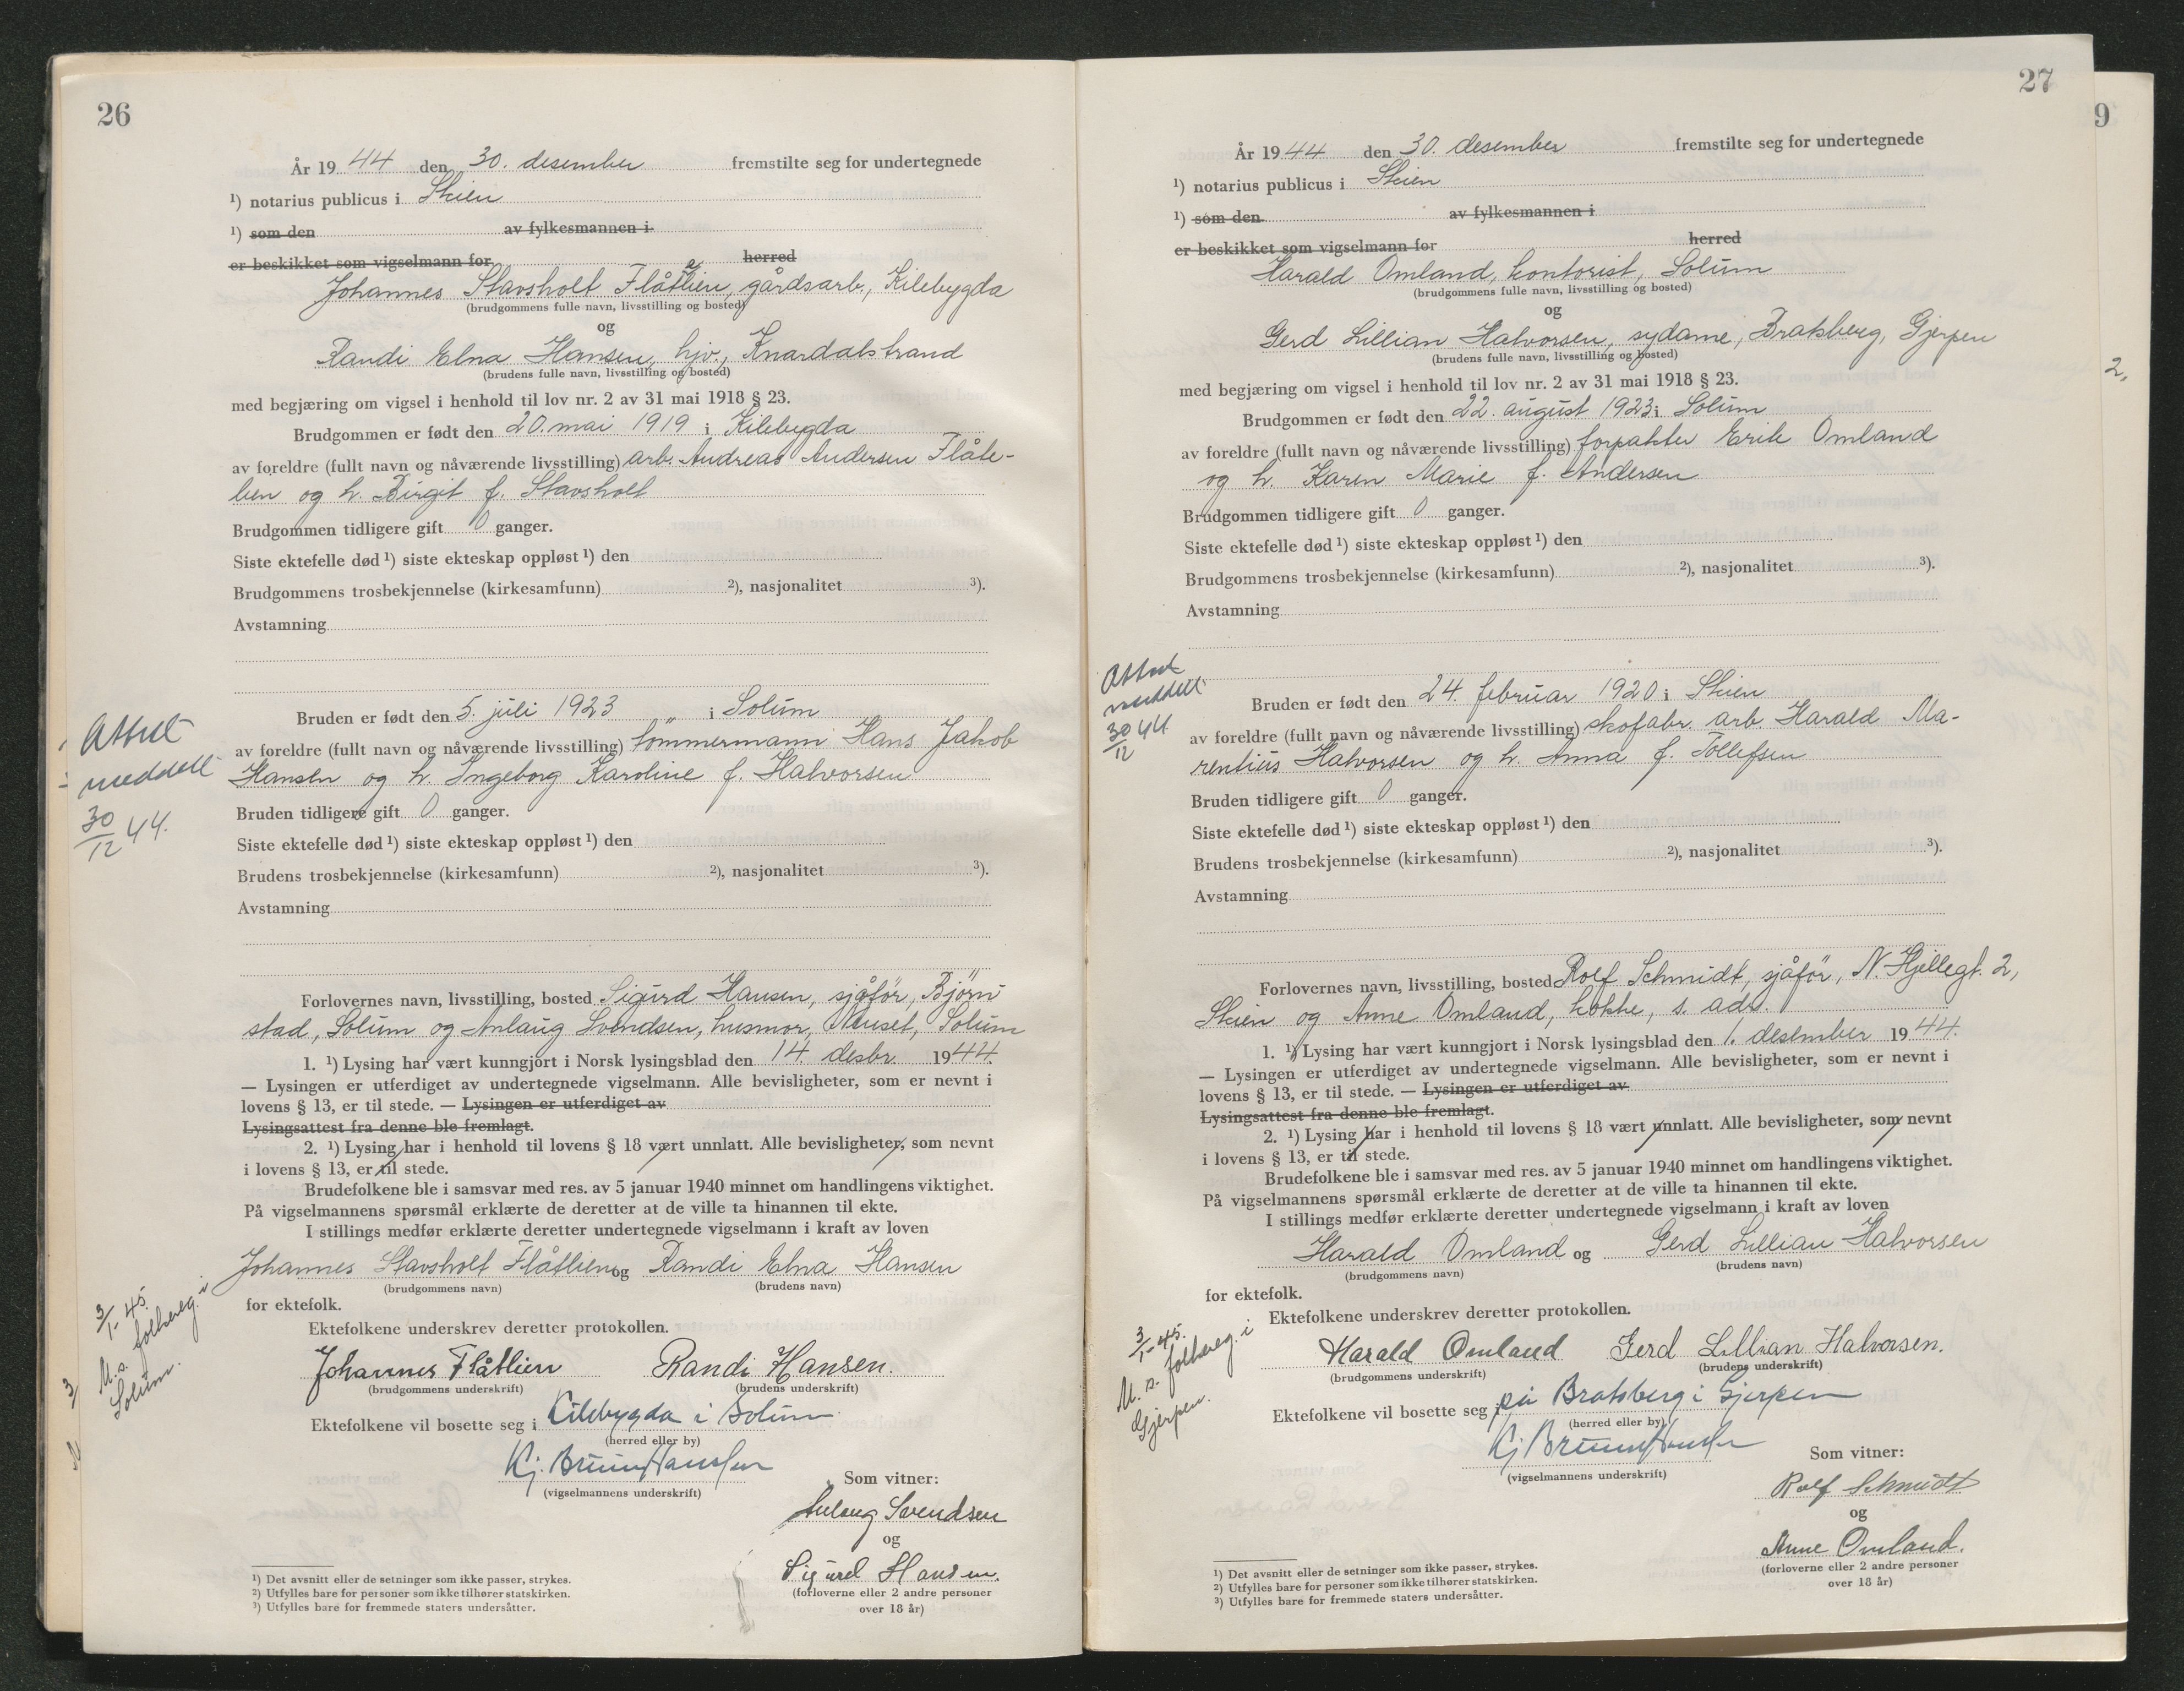 26
År 1944 den 30. desember fremstilte seg for undertegnede
¹) notarius publicus i Skien
¹) som den av fylkesmannen i
er beskikket som vigselmann for herred
Johannes Stavsholt Flåtlien, gårdsarb., Kilebygda
(brudgommens fulle navn, livsstilling og bosted)
og
Randi Elna Hansen, hjv., Knardalstrand
(brudens fulle navn, livsstilling og bosted)
med begjæring om vigsel i henhold til lov nr. 2 av 31 mai 1918 § 23.
Brudgommen er født den 20. mai 1919 i Kilebygda
av foreldre (fullt navn og nåværende livsstilling) arb. Andreas Andersen Flåte-
lien og h. Birgit f. Stavsholt
Brudgommen tidligere gift 0 ganger.
Siste ektefelle død ¹) siste ekteskap oppløst ¹) den
Brudgommens trosbekjennelse (kirkesamfunn) ²), nasjonalitet ³).
Avstamning
Attest
meddelt
30/12 44.
Bruden er født den 5. juli 1923 " i Solum
av foreldre (fullt navn og nåværende livsstilling) tømmermann Hans Jakob
Hansen og h. Ingeborg Karoline f. Halvorsen
Bruden tidligere gift 0 ganger.
Siste ektefelle død ¹) siste ekteskap oppløst ¹) den
Brudens trosbekjennelse (kirkesamfunn) ²), nasjonalitet ³).
Avstamning
Forlovernes navn, livsstilling, bosted Sigurd Hansen, sjåför, Björn-
stad, Solum og Anlaug Svendsen, husmor, Solum
1. ¹) Lysing har vært kunngjort i Norsk lysingsblad den 14. desbr. 1944.
— Lysingen er utferdiget av undertegnede vigselmann. Alle bevisligheter, som er nevnt i
lovens § 13, er til stede. — Lysingen er utferdiget av
Lysingsattest fra denne ble fremlagt.
2. ¹) Lysing har i henhold til lovens § 18 vært unnlatt. Alle bevisligheter, som nevnt
i lovens § 13, er til stede.
Brudefolkene ble i samsvar med res. av 5 januar 1940 minnet om handlingens viktighet.
På vigselmannens spørsmål erklærte de deretter at de ville ta hinannen til ekte.
I stillings medfør erklærte deretter undertegnede vigselmann i kraft av loven
Johannes Stavsholt Flåtlien og Randi Elna Hansen
(brudgommens navn) (brudens navn)
for ektefolk.
3/1-45.
M. s. folkereg. i
Solum.
Ektefolkene underskrev deretter protokollen.
Johannes Flåtlien Randi Hansen.
(brudgommens underskrift) (brudens underskrift)
Ektefolkene vil bosette seg i Kilebygda i Solum
(herred eller by)
Kj. Bruun Hanssen
(vigselmannens underskrift)
Som vitner:
Anlaug Svendsen
og
Sigurd Hansen.
(forloverne eller 2 andre personer
over 18 år)
¹) Det avsnitt eller de setninger som ikke passer, strykes.
²) Utfylles bare for personer som ikke tilhører statskirken.
³) Utfylles bare for fremmede staters undersåtter.
27
9
2,
År 1944 den 30. desember fremstilte seg for undertegnede
¹) notarius publicus i Skien
¹) som den av fylkesmannen i
er beskikket som vigselmann for herred
Harald Omland, kontorist, Solum
(brudgommens fulle navn, livsstilling og bosted)
og
Gerd Lillian Halvorsen, sydame, Bratsberg, Gjerpen
(brudens fulle navn, livsstilling og bosted)
med begjæring om vigsel i henhold til lov nr. 2 av 31 mai 1918 § 23.
Brudgommen er født den 22. august 1923 i Solum
av foreldre (fullt navn og nåværende livsstilling) forpakter Erik Omland
og h. Karen Marie f. Andersen
Brudgommen tidligere gift 0 ganger.
Siste ektefelle død ¹) siste ekteskap oppløst ¹) den
Brudgommens trosbekjennelse (kirkesamfunn) ²), nasjonalitet ³).
Avstamning
Attest
meddelt
30/12 44
Bruden er født den 24. februar 1920 i Skien
av foreldre (fullt navn og nåværende livsstilling) skofabr. arb. Harald Ma-
rentius Halvorsen og h. Anna f. Tollefsen
Bruden tidligere gift 0 ganger.
Siste ektefelle død ¹) siste ekteskap oppløst ¹) den
Brudens trosbekjennelse (kirkesamfunn) ²), nasjonalitet ³).
Avstamning
Forlovernes navn, livsstilling, bosted Rolf Schmidt, sjåför, N. Hjellegt. 2,
Skien og Anne Omland, kokke, s. adr.
1. ¹) Lysing har vært kunngjort i Norsk lysingsblad den 1. desember 1944.
— Lysingen er utferdiget av undertegnede vigselmann. Alle bevisligheter, som er nevnt i
lovens § 13, er til stede. — Lysingen er utferdiget av
Lysingsattest fra denne ble fremlagt.
2. ¹) Lysing har i henhold til lovens § 18 vært unnlatt. Alle bevisligheter, som nevnt
i lovens § 13, er til stede.
Brudefolkene ble i samsvar med res. av 5 januar 1940 minnet om handlingens viktighet.
På vigselmannens spørsmål erklærte de deretter at de ville ta hinannen til ekte.
I stillings medfør erklærte deretter undertegnede vigselmann i kraft av loven
Harald Omland og Gerd Lillian Halvorsen
(brudgommens navn) (brudens navn)
for ektefolk.
3/1-45.
M. s. folkereg. i
Gjerpen.
Ektefolkene underskrev deretter protokollen.
Harald Omland Gerd Lillian Halvorsen.
(brudgommens underskrift) (brudens underskrift)
Ektefolkene vil bosette seg i på Bratsberg i Gjerpen
(herred eller by)
Kj Bruun Hanssen
(vigselmannens underskrift)
Som vitner:
Rolf Schmidt
og
Anne Omland.
(forloverne eller 2 andre personer
over 18 år)
¹) Det avsnitt eller de setninger som ikke passer, strykes.
²) Utfylles bare for personer som ikke tilhører statskirken.
³) Utfylles bare for fremmede staters undersåtter.